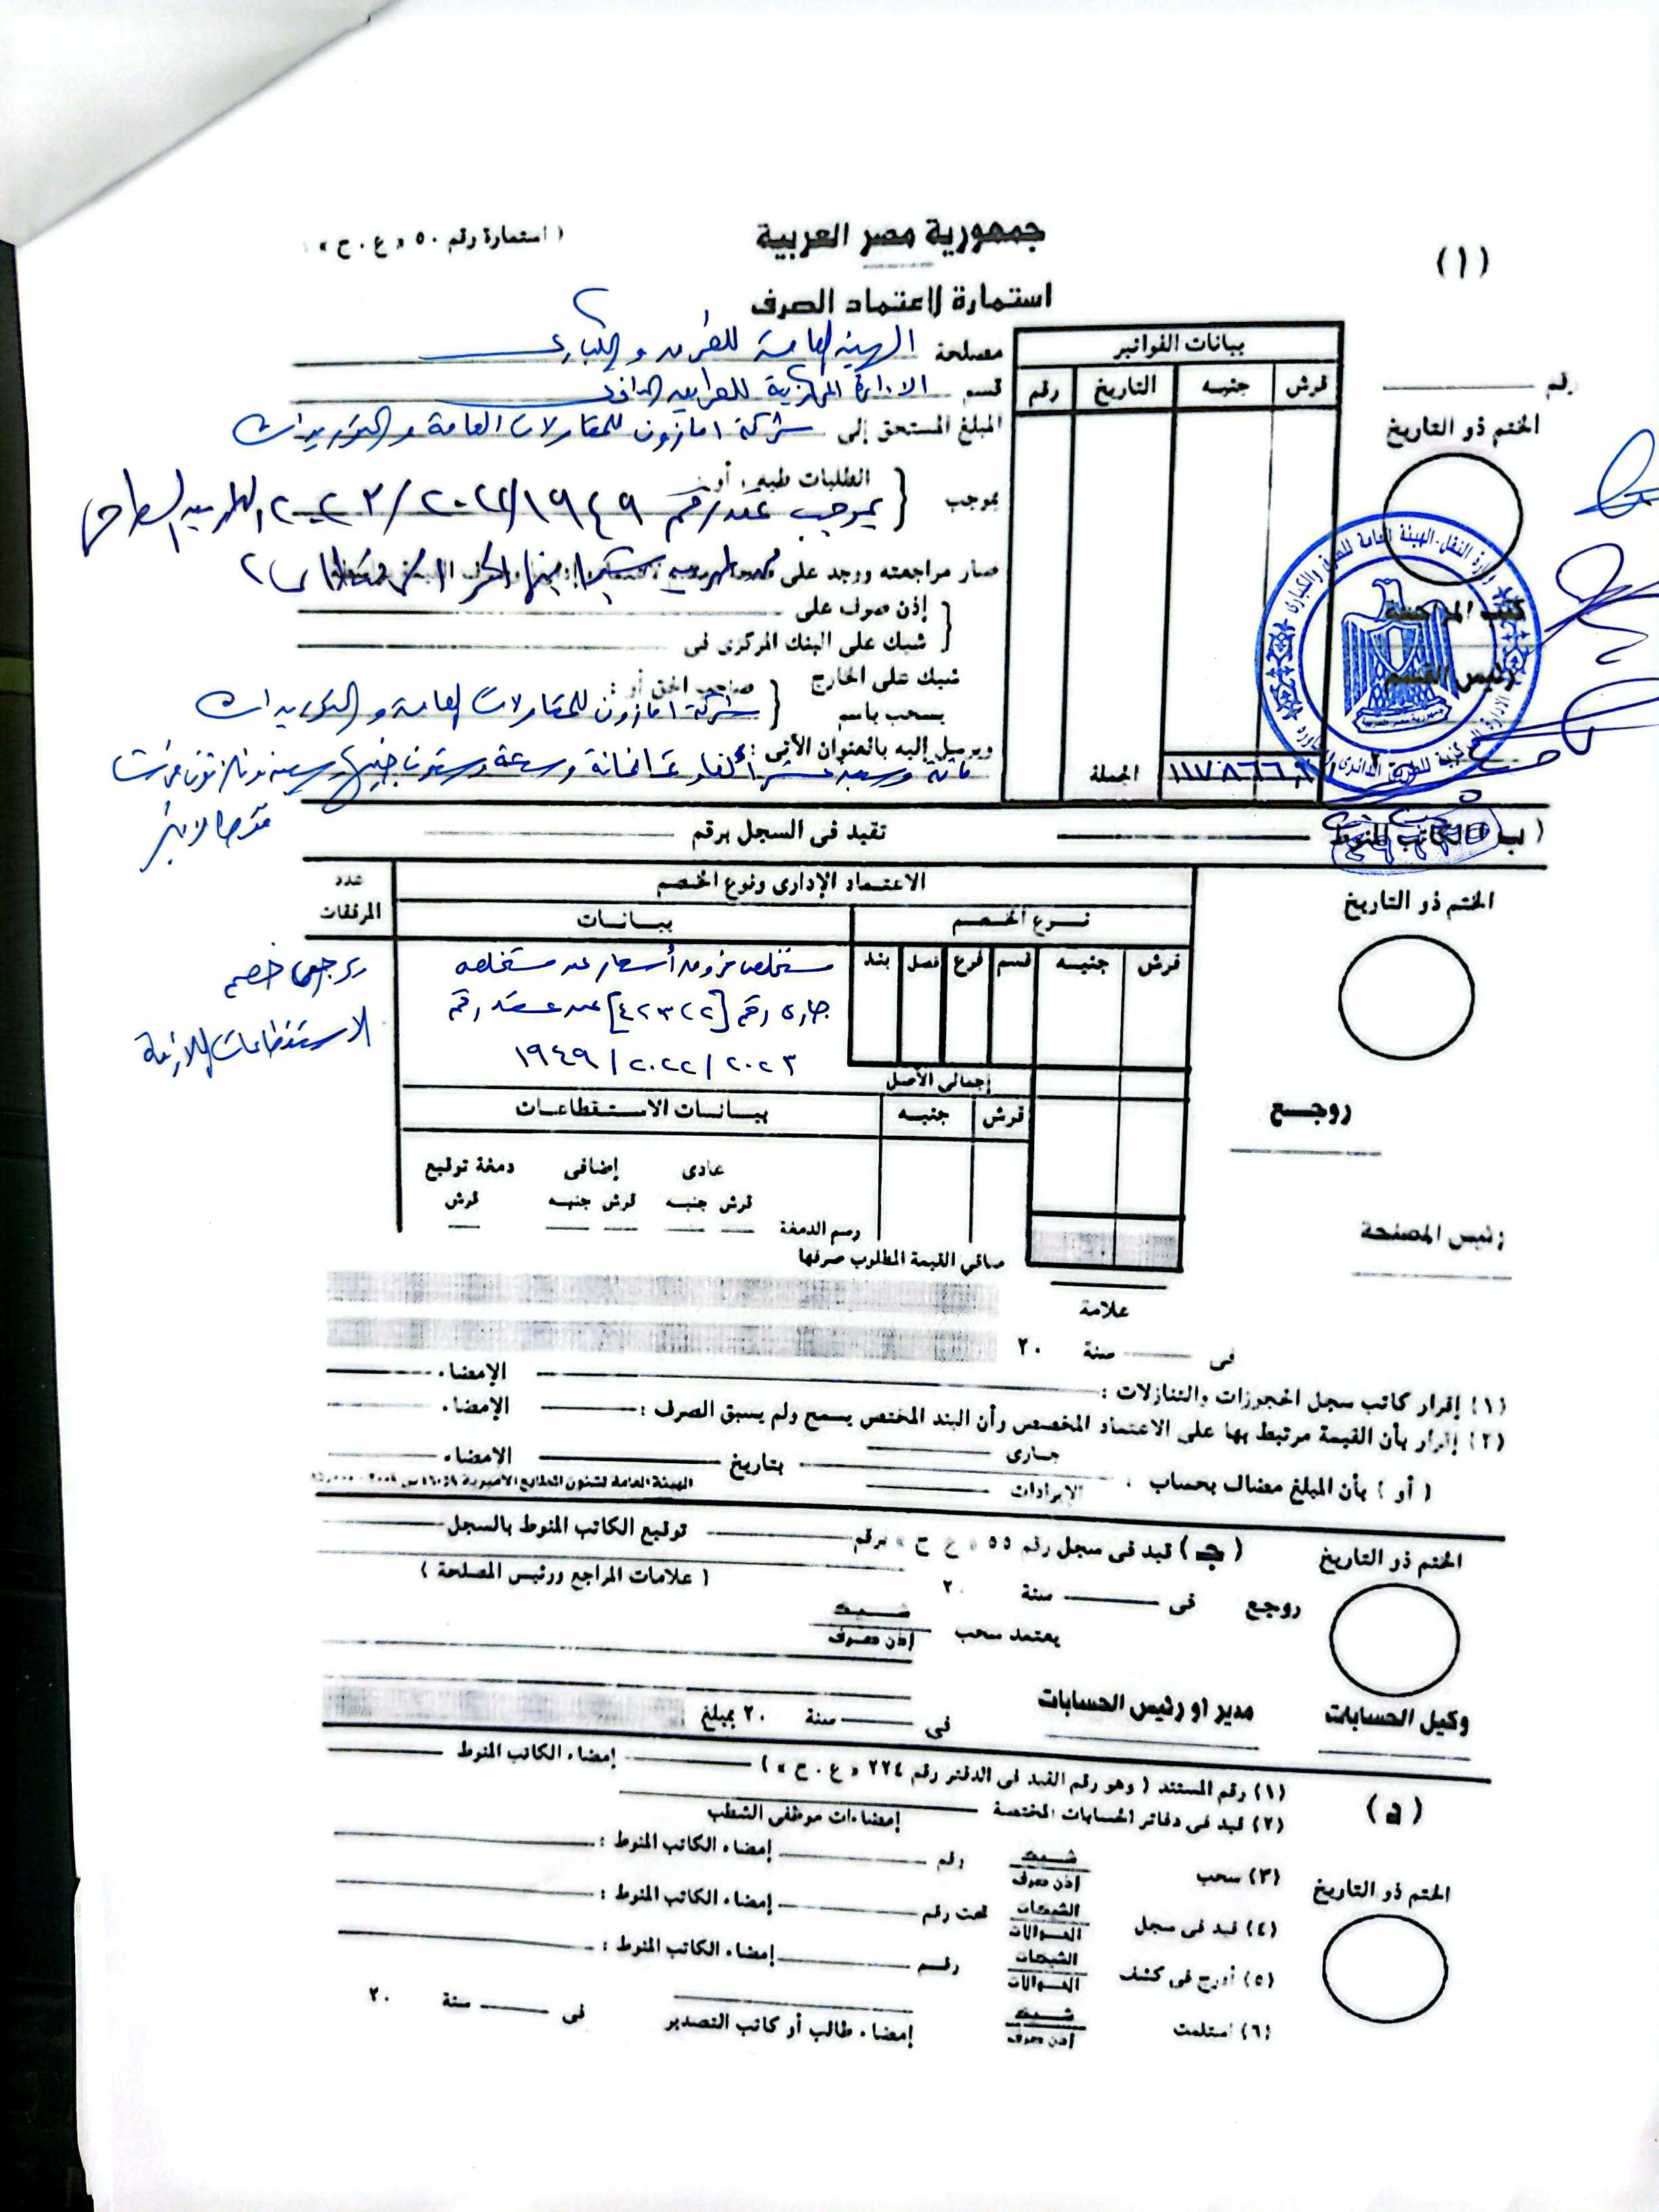 ( استمارة رقم ٥٠ « ع . ح »
جمهورية مصر العربية
(١)
استمارة لاعتماد الصرف
مصلحة الهيئة العامة للطرق و الكبارى
قسم الادارة المركزية للطريق الدائرى
المبلغ المستحق إلى شركة امازون للمقاولات العامة و التوريدات
بموجب
بموجب عقد رقم ١٩٤٩ / ٢٠٢٢ / ٢٠٢٣
صار مراجعته ووجد على
إذن صرف على
شيك على البنك المركزى فى
شيك على الخارج
يسحب باسم
صاحب الحق أو :
شركة امازون للمقاولات العامة و التوريدات
ويرسل إليه بالعنوان الآتى :
بيانات الفواتير
قرش
جنيه
التاريخ
رقم
الجملة
رقم
الختم ذو التاريخ
كتب المراجعة
رئيس القسم
وزارة النقل - الهيئة العامة للطرق والكبارى
جمهورية مصر العربية
( ب ) الكاتب المنوط
تقيد فى السجل برقم
الاعتماد الإدارى ونوع الخصم
عدد المرفقات
نوع الخصم
بيانات
قرش
جنيه
قسم
فرع
فصل
بند
مستخلص فروق أسعار عن مستخلص
جارى رقم [ ٤٢٣٢٢ ] عن عقد رقم
١٩٤٩ / ٢٠٢٢ / ٢٠٢٣
يرجى خصم
الاستقطاعات اللازمة
الختم ذو التاريخ
إجمالى الأصل
قرش
جنيه
بيانات الاستقطاعات
عادى
إضافى
دمغة توقيع
قرش جنيه
قرش جنيه
قرش
رسم الدمغة
صافى القيمة المطلوب صرفها
روجع
رئيس المصلحة
علامة
فى سنة ٢٠
(١) إقرار كاتب سجل الحجوزات والتنازلات : الإمضاء
(٢) إقرار بأن القيمة مرتبط بها على الاعتماد المخصص وأن البند المختص يسمح ولم يسبق الصرف : الإمضاء
( أو ) بأن المبلغ مضاف بحساب جارى الإيرادات بتاريخ الإمضاء
الهيئة العامة لشئون المطابع الأميرية
(جـ) قيد فى سجل رقم ٥٥ « ع ح » برقم توقيع الكاتب المنوط بالسجل
الختم ذو التاريخ
روجع فى سنة ٢٠
( علامات المراجع ورئيس المصلحة )
يعتمد سحب شيك
إذن صرف
وكيل الحسابات
مدير او رئيس الحسابات
فى سنة ٢٠ بمبلغ
(١) رقم المستند ( وهو رقم القيد فى الدفتر رقم ٢٢٤ « ع . ح » ) إمضاء الكاتب المنوط
(٢) قيد فى دفاتر الحسابات المختصة إمضاءات موظفى الشطب
(٣) سحب شيك إذن صرف رقم إمضاء الكاتب المنوط :
الختم ذو التاريخ
(٤) قيد فى سجل الشيكات الحوالات تحت رقم إمضاء الكاتب المنوط :
(٥) أدرج فى كشف الشيكات الحوالات رقم إمضاء الكاتب المنوط :
(٦) استلمت شيك إذن صرف إمضاء طالب أو كاتب التصدير فى سنة ٢٠